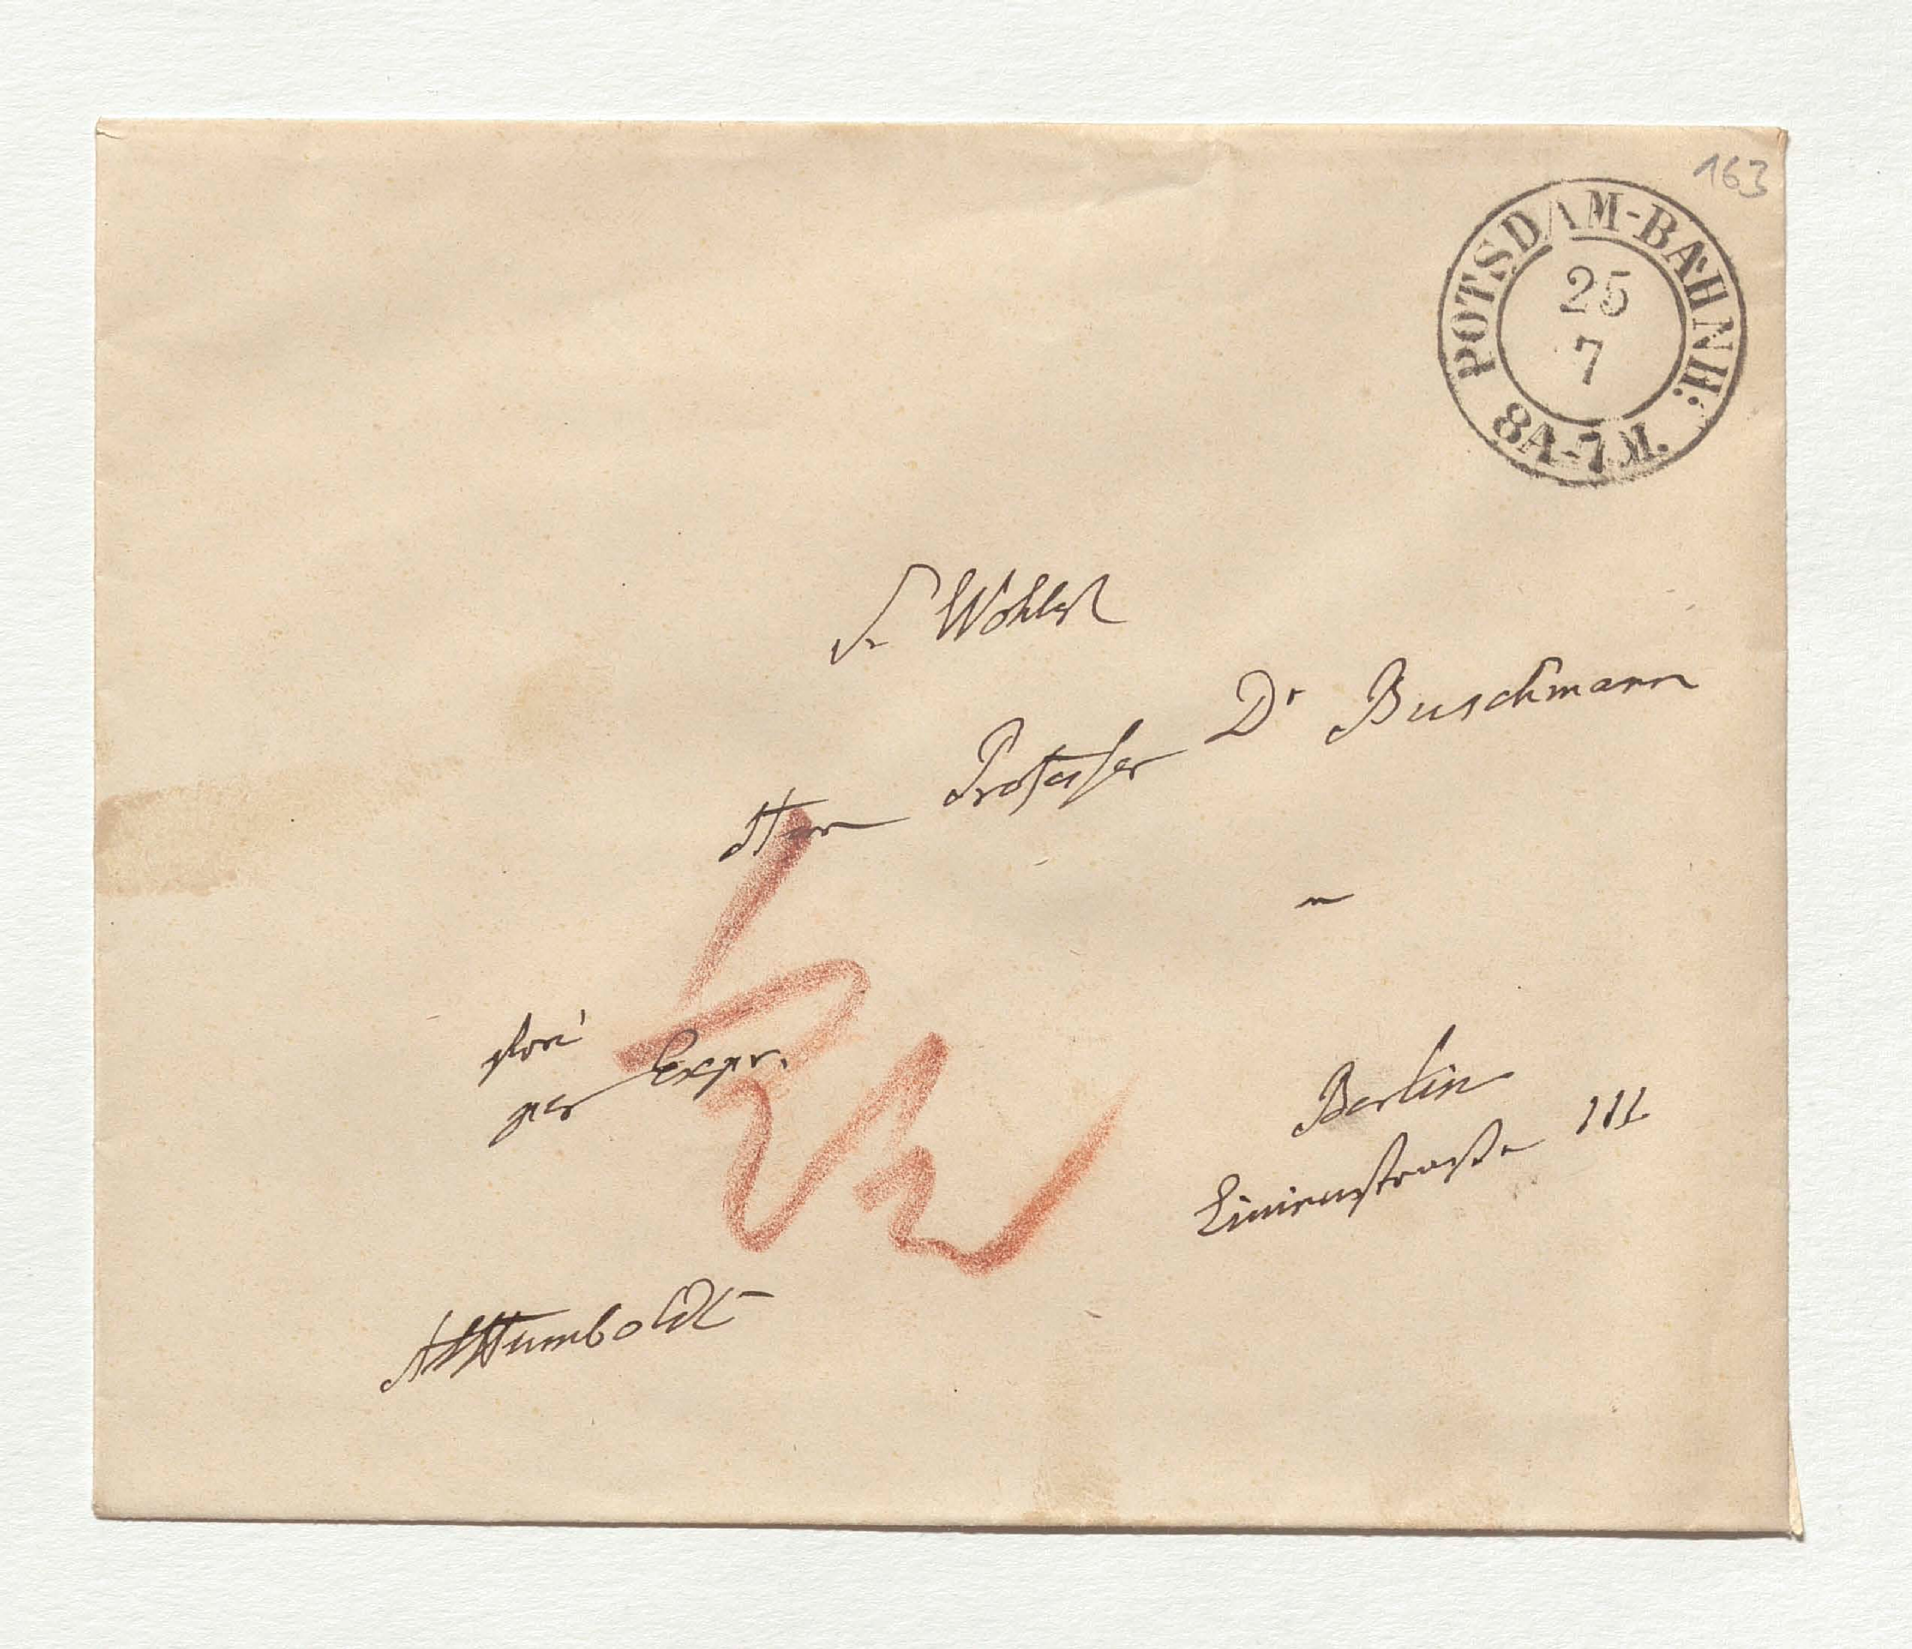 163
POTSDAM-BAHNH:
25
7
8A-7M.
Sr Wohlgb
Herrn Professer Dr Buschmann
in
Berlin
Linienstraße 111
per Expr.
AvHumboldt